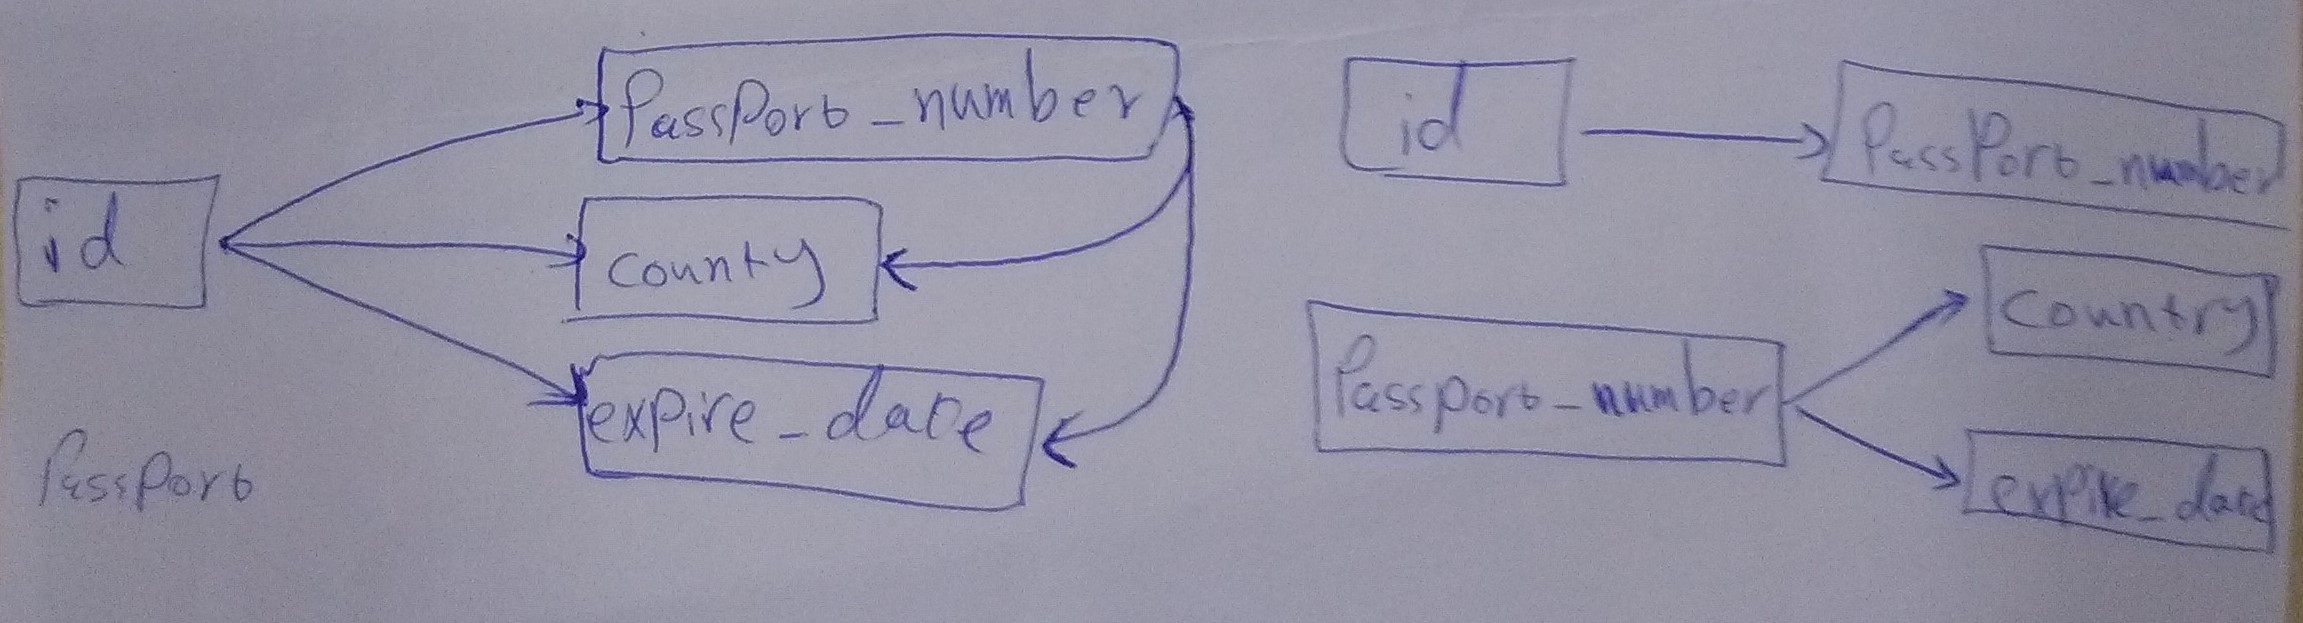 id
PassPort_number
county
expire_date
PassPort
id
PassPort_number
Passport_number
country
expire_date